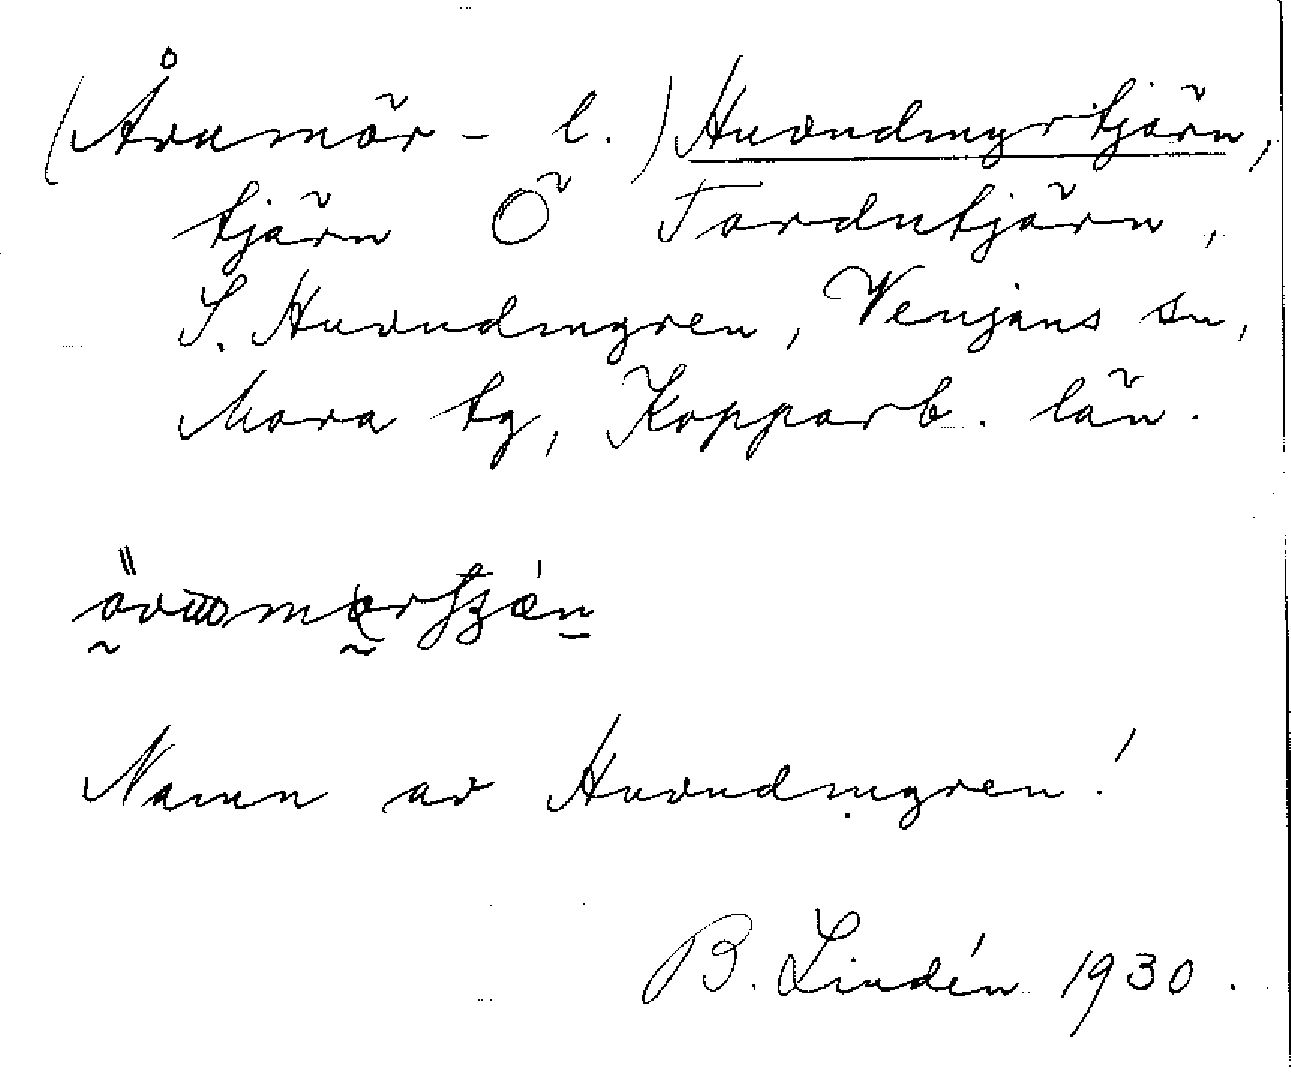 (Åvumör- l.) Huvudmyrtjärn,
tjärn Ö Tordutjärn,
S. Huvudmyren, Venjans sn,
Mora tg, Kopparb. län.
Namn av Huvudmyren!
B. Lindén 1930.